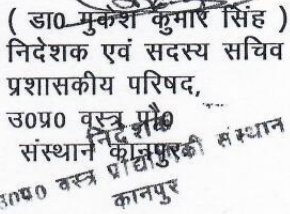 ( डा० मुकेश कुमार सिंह )
निदेशक एवं सदस्य सचिव
प्रशासकीय परिषद,
उ०प्र० वस्त्र प्रौ०
संस्थान कानपुर
निदेशक
उ०प्र० वस्त्र प्रौद्योगिकी संस्थान
कानपुर